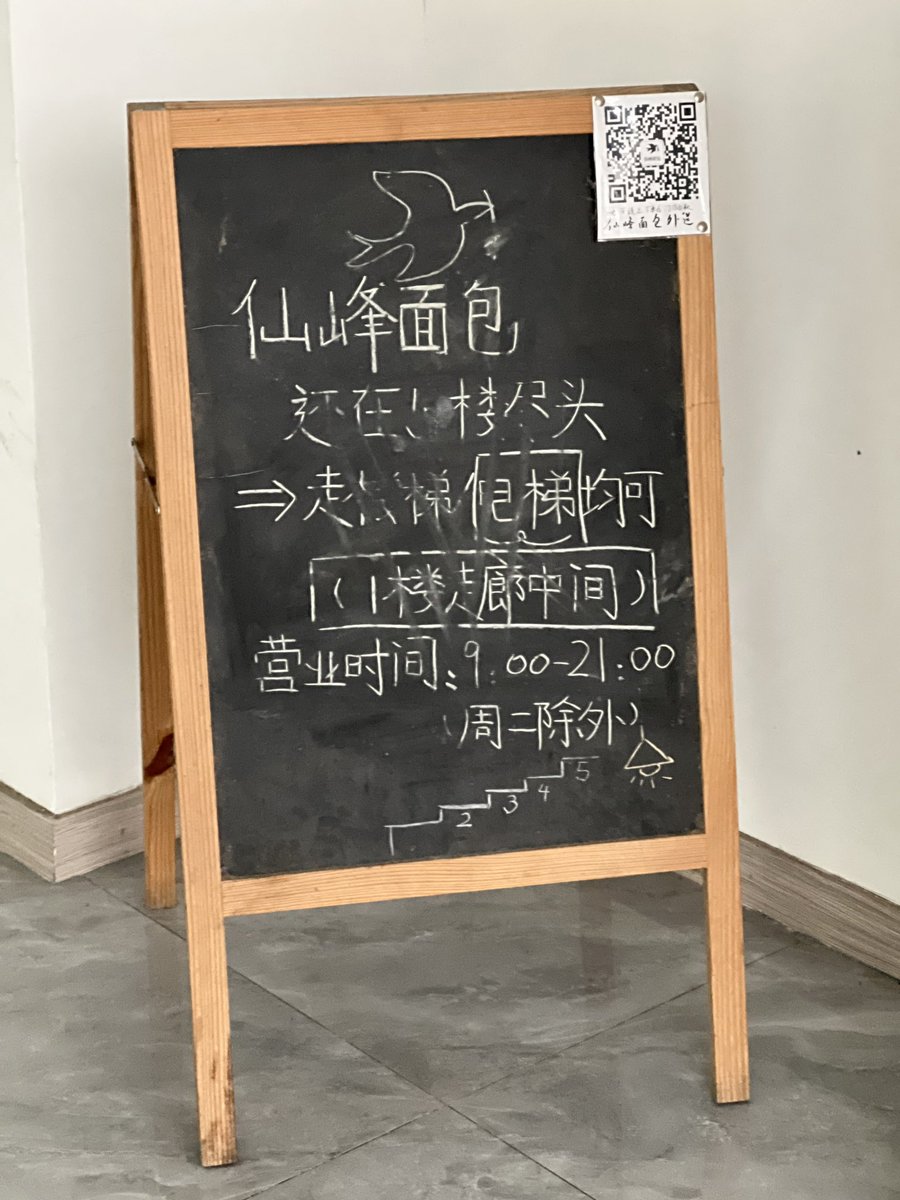 仙峰面包外送
仙峰面包
还在 楼尽头
⇒走 梯 电梯均可
(1楼走廊中间)
营业时间:9:00-21:00
(周二除外)
2 3 4 5